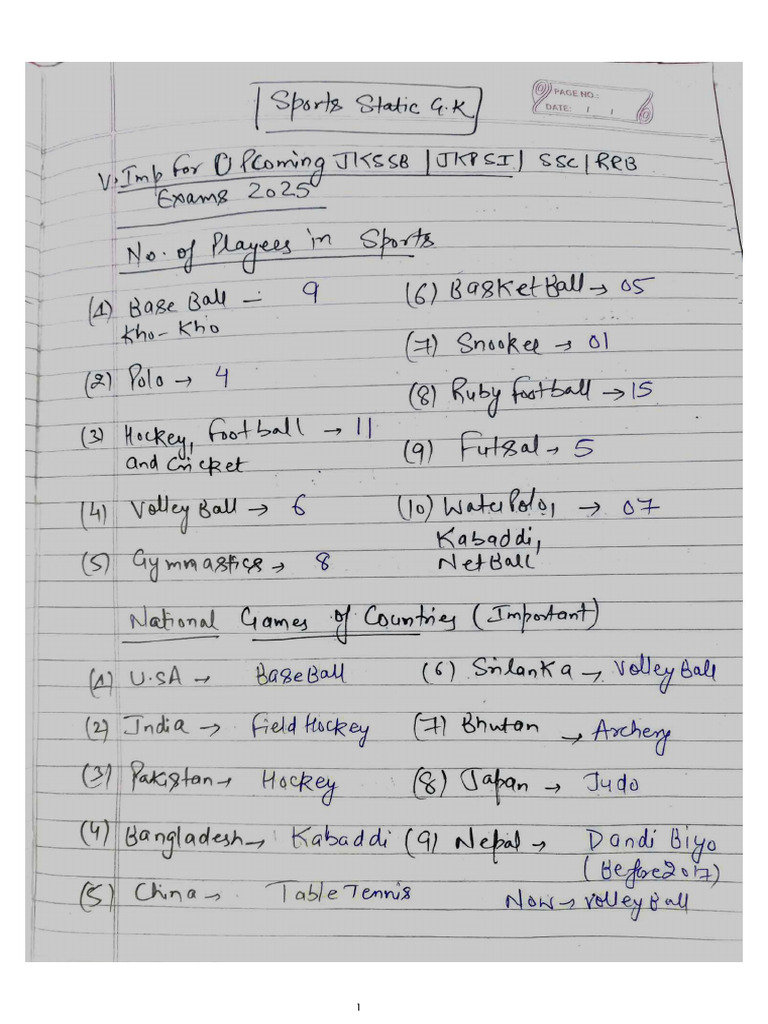 Sports Static G.K
PAGE NO.:
DATE: / /
V. Imp for Upcoming JKSSB | JKPSI | SSC | RRB
Exams 2025
No. of Players in Sports
(1) Base Ball — 9
Kho-Kho
(2) Polo → 4
(3) Hockey, Football → 11
and Cricket
(4) Volley Ball → 6
(5) Gymnastics → 8
(6) BasketBall → 05
(7) Snooker → 01
(8) Ruby football → 15
(9) Futsal → 5
(10) WaterPolo, → 07
Kabaddi,
NetBall
National Games of Countries (Important)
(1) U.SA → BaseBall
(2) India → Field Hockey
(3) Pakistan → Hockey
(4) Bangladesh → Kabaddi
(5) China → Table Tennis
(6) Srilanka → Volley Ball
(7) Bhutan → Archery
(8) Japan → Judo
(9) Nepal → Dandi Biyo
(Before 2017)
Now → Volley Ball
1